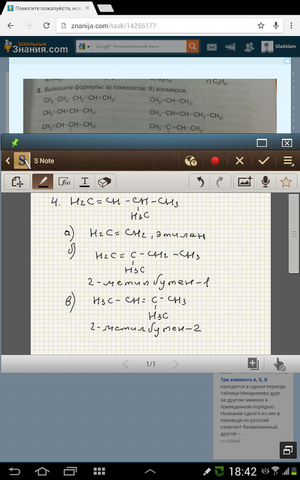 Помогите пожалуйста, нов
znanija.com/task/14255177
Школьные
Знания.com
Gladxlam
3. Выпишите формулы: а) гомологов; б) изомеров.
S Note
4. H₂C = CH - CH - CH₃
H₃C
а) H₂C = CH₂, этилен
б) H₂C = C - CH₂ - CH₃
H₃C
2-метилбутен-1
в) H₃C - CH = C - CH₃
H₃C
2-метилбутен-2
1/1
Три элемента А, Б, В
находятся в одном периоде
таблице Менделеева друг
за другом (именно в
приведенном порядке).
Название одного из них в
переводе на русский
означает безжизненный,
другой -...
18:42